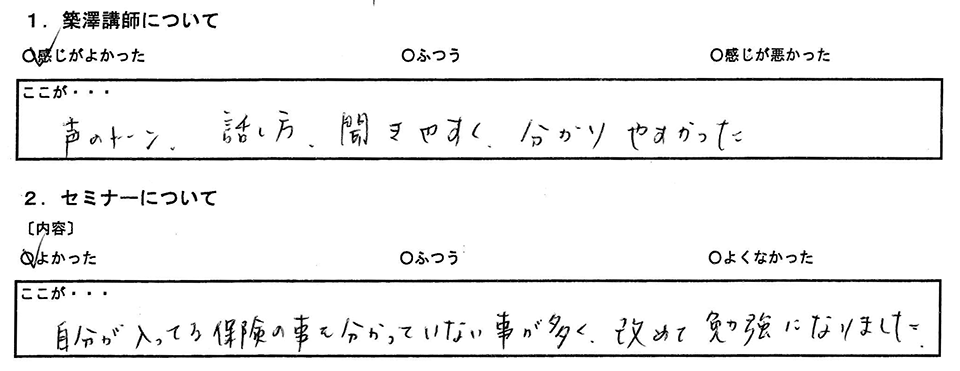 1．築澤講師について
○感じがよかった ○ふつう ○感じが悪かった
ここが・・・
声のトーン、話し方、聞きやすく、分かりやすかった
2．セミナーについて
〔内容〕
○よかった ○ふつう ○よくなかった
ここが・・・
自分が入ってる保険の事も分かっていない事が多く、改めて勉強になりました。